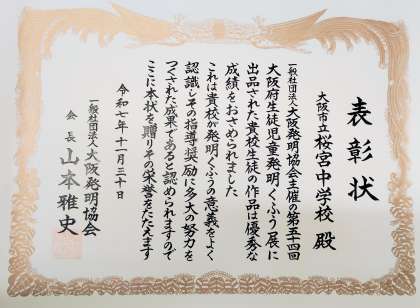 表彰状
大阪市立桜宮中学校 殿
一般社団法人大阪発明協会主催の第五十四回
大阪府生徒児童発明くふう展に
出品された貴校生徒の作品は優秀な
成績をおさめられました
これは貴校が発明くふうの意義をよく
認識しその指導奨励に多大の努力を
つくされた成果であると認められますので
ここに本状を贈りその栄誉をたたえます
令和七年十一月三十日
一般社団法人大阪発明協会
会長 山本雅史